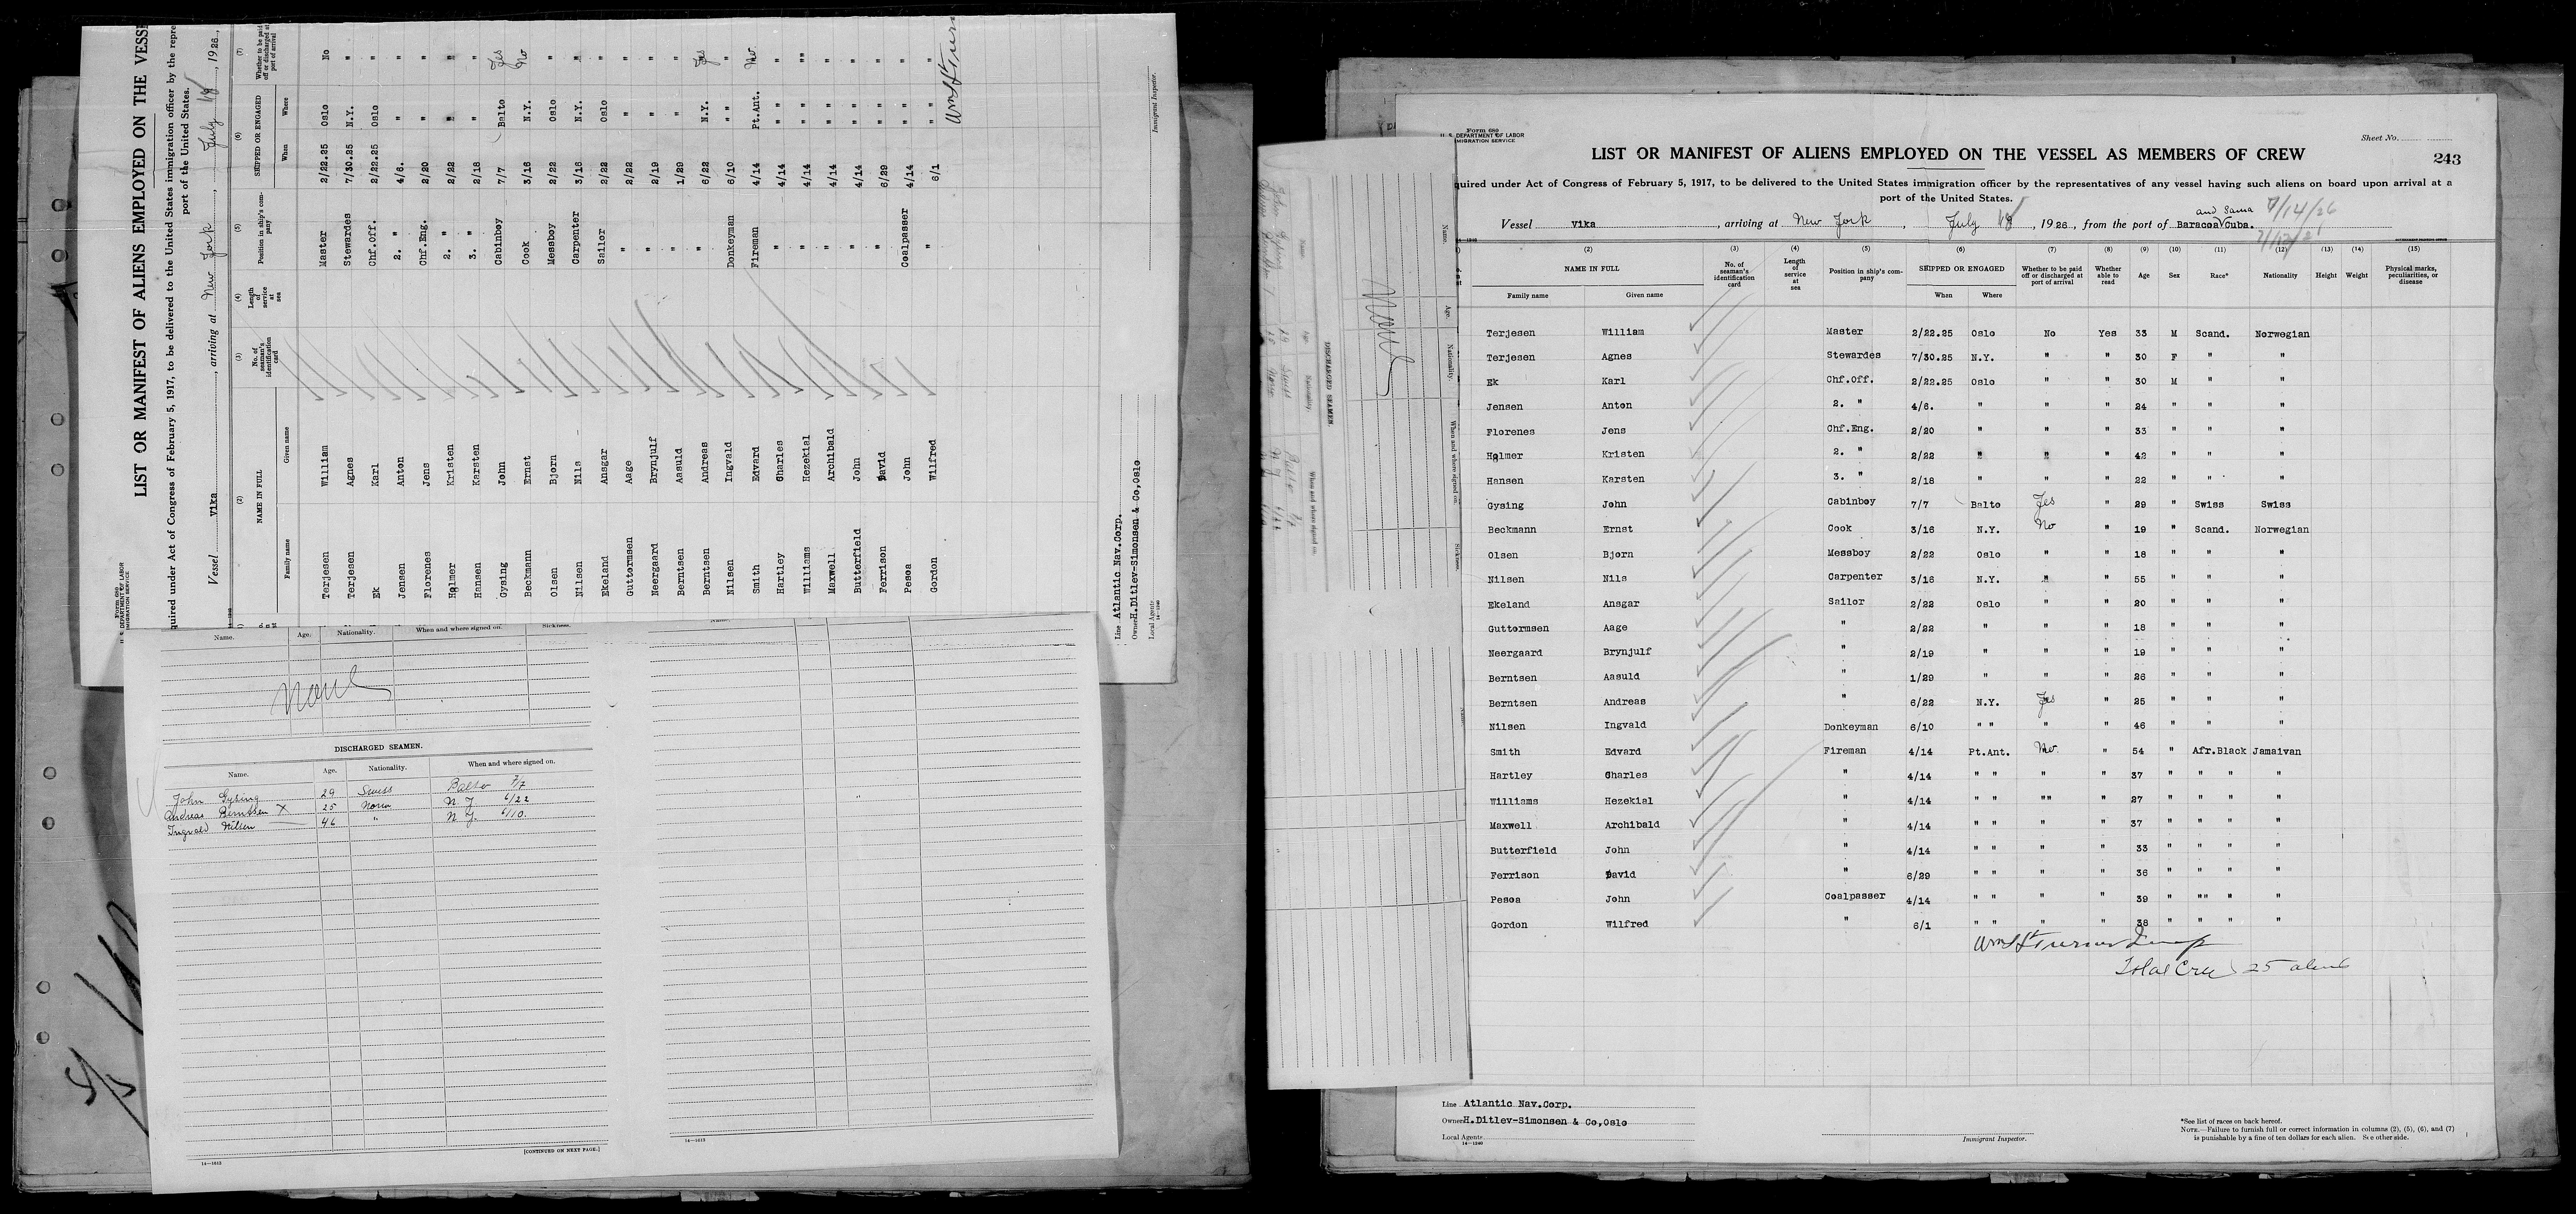 Form 680
U. S. DEPARTMENT OF LABOR
MIGRATION SERVICE
LIST OR MANIFEST OF ALIENS EMPLOYED ON THE VESSE
quired under Act of Congress of February 5, 1917, to be delivered to the United States immigration officer by the repre
port of the United States.
Vessel Vika, arriving at New York, July 18, 1926,
(2) (3) (4) (5) (6) (7)
NAME IN FULL No. of seaman's identification card Length of service at sea Position in ship's company SHIPPED OR ENGAGED Whether to be paid off or discharged at port of arrival
Family name Given name When Where
Terjesen William Master 2/22.25 Oslo No
Terjesen Agnes Stewardes 7/30.25 N.Y. "
Ek Karl Chf.Off. 2/22.25 Oslo "
Jensen Anton 2. " 4/6. " "
Florenes Jens Chf.Eng. 2/20 " "
Holmer Kristen 2. " 2/22 " "
Hansen Karsten 3. " 2/18 " "
Gysing John Cabinboy 7/7 Balto Yes
Beckmann Ernst Cook 3/16 N.Y. No
Olsen Bjorn Messboy 2/22 Oslo "
Nilsen Nils Carpenter 3/16 N.Y. "
Ekeland Ansgar Sailor 2/22 Oslo "
Guttormsen Aage " 2/22 " "
Neergaard Brynjulf " 2/19 " "
Berntsen Aasuld " 1/29 " "
Berntsen Andreas " 6/22 N.Y. Yes
Nilsen Ingvald Donkeyman 6/10 " " "
Smith Edvard Fireman 4/14 Pt.Ant. No
Hartley Charles " 4/14 " " "
Williams Hezekial " 4/14 " " ""
Maxwell Archibald " 4/14 " " "
Butterfield John " 4/14 " " "
Ferrison David " 6/29 " " "
Pesoa John Coalpasser 4/14 " " "
Gordon Wilfred " 6/1 " " "
Wm H Turner
Line Atlantic Nav.Corp.
Owner H.Ditlev-Simonsen & Co,Oslo
Local Agents
14—1240
Immigrant Inspector.
Name. Age. Nationality. When and where signed on. Sickness.
None
DISCHARGED SEAMEN.
Name. Age. Nationality. When and where signed on.
John Gysing 29 Swiss Balto 7/7
Andreas Berntsen X 25 Norw N. Y. 6/22
Ingvald Nilsen 46 " N. Y. 6/10.
[CONTINUED ON NEXT PAGE.]
Form 680
U. S. DEPARTMENT OF LABOR
MIGRATION SERVICE
Sheet No.
LIST OR MANIFEST OF ALIENS EMPLOYED ON THE VESSEL AS MEMBERS OF CREW
243
quired under Act of Congress of February 5, 1917, to be delivered to the United States immigration officer by the representatives of any vessel having such aliens on board upon arrival at a
port of the United States.
and Sama 7/14/26
Vessel Vika, arriving at New York, July 18, 1926, from the port of Baracoa Cuba.
(2) (3) (4) (5) (6) (7) (8) (9) (10) (11) (12) (13) (14) (15)
NAME IN FULL No. of seaman's identification card Length of service at sea Position in ship's company SHIPPED OR ENGAGED Whether to be paid off or discharged at port of arrival Whether able to read Age Sex Race* Nationality Height Weight Physical marks, peculiarities, or disease
Family name Given name When Where
Terjesen William Master 2/22.25 Oslo No Yes 33 M Scand. Norwegian
Terjesen Agnes Stewardes 7/30.25 N.Y. " " 30 F " "
Ek Karl Chf.Off. 2/22.25 Oslo " " 30 M " "
Jensen Anton 2. " 4/6. " " " 24 " " "
Florenes Jens Chf.Eng. 2/20 " " " 33 " " "
Holmer Kristen 2. " 2/22 " " " 42 " " "
Hansen Karsten 3. " 2/18 " " " 22 " " "
Gysing John Cabinboy 7/7 Balto Yes " 29 " Swiss Swiss
Beckmann Ernst Cook 3/16 N.Y. No " 19 " Scand. Norwegian
Olsen Bjorn Messboy 2/22 Oslo " " 18 " " "
Nilsen Nils Carpenter 3/16 N.Y. " " 55 " " "
Ekeland Ansgar Sailor 2/22 Oslo " " 20 " " "
Guttormsen Aage " 2/22 " " " 18 " " "
Neergaard Brynjulf " 2/19 " " " 19 " " "
Berntsen Aasuld " 1/29 " " " 26 " " "
Berntsen Andreas " 6/22 N.Y. Yes " 25 " " "
Nilsen Ingvald Donkeyman 6/10 " " " " 46 " " "
Smith Edvard Fireman 4/14 Pt.Ant. No " 54 " Afr.Black Jamaivan
Hartley Charles " 4/14 " " " " 37 " " " "
Williams Hezekial " 4/14 " " "" " 27 " " " "
Maxwell Archibald " 4/14 " " " " 37 " " " "
Butterfield John " 4/14 " " " " 33 " " " "
Ferrison David " 6/29 " " " " 36 " " " "
Pesoa John Coalpasser 4/14 " " " " 39 " "" " "
Gordon Wilfred " 6/1 " " " " 38 " " " "
Wm H Turner Insp
Total Crew 25 aliens
Line Atlantic Nav.Corp.
Owner H.Ditlev-Simonsen & Co,Oslo
Local Agents
14—1240
Immigrant Inspector.
*See list of races on back hereof.
NOTE.—Failure to furnish full or correct information in columns (2), (5), (6), and (7)
is punishable by a fine of ten dollars for each alien. See other side.